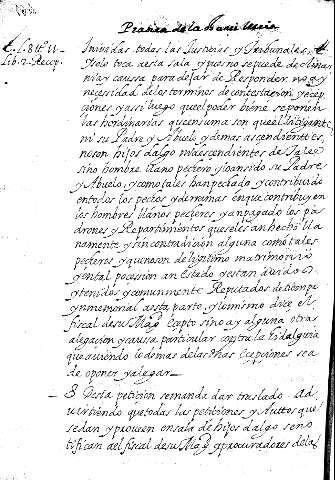 Practica de la
L. 8 tto 11
Lib. 2. Recop.
Inividas todas las Justicias, y Tribunales,
solo toca desta sala, y assi no se puede
nia y caussa para dejar de Responder. no ay
necesidad de los terminos de contestacion, y ecep
ciones y assi luego que el poder biene se ponen
las hordinarias que en suma son que el litigante
ni su Padre y Abuelo y demas ascendientes,
no son hijos dalgo ni descendientes de tales
sino hombre llano pechero y han sido su Padre
y Abuelo, y como tales han pechado y contribuido
en todos los pechos, y derramas en que contribuyen
los hombres llanos pecheros y an pagado los pa
drones, y Repartimientos que se les an hecho lla
namente y sin contradicion alguna como tales
pecheros y que no son de legitimo matrimonio
y en tal posesion an estado y estan avidos
y tenidos y comunmente Reputados de tiempo
ynmemorial a esta parte, y lo mismo dice el
fiscal de su Magd. Excepto si no ay alguna otra
alegacion y caussa particular contra la hidalguia
que aviendo lo demas de las dhas Ecepciones se a
de oponer y alegar
8 Desta peticion se manda dar traslado. ad
virtiendo que todas las peticiones, y Auttos que
se dan y proveen en sala de hijos dalgo se no
tifican al fiscal de su Magd. y a procuradores de la